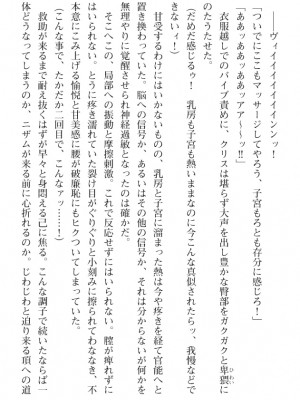 ――ヴィイイイイイインッ！
「ついでにここもマッサージしてやろう、子宮もろとも存分に感じろ！」
「ああっ、ああぁっアア〜〜ッ‼」
衣服越しでのバイブ責めに、クリスは堪らず大声を出し豊かな臀部をガクガクと卑猥に
のたうたせた。
（だめだ感じるぅ！　乳房も子宮も熱いままなのに今こんな真似されたらッ、我慢などで
きないぃ！）
甘受するわけにはいかないものの、乳房と子宮に溜まった熱は今や疼きを経て官能へと
置き換わっていた。脳への信号か、あるいはその他の信号か、それは分からないが何かを
無理やりに覚醒させられ神経過敏となったのは確かだ。
そこへこの、局部への振動と摩擦刺激。これで反応せずにはいられない。膣が痺れずに
はいられない。とうに疼き濡れていた裂け目がぐりぐりと小刻みに擦られてわななき、不
本意にこみ上げる愉悦と甘美感に腰が破廉恥にもヒクついてしまっていた。
（こんな事で、たかだか二回目で、こんなァっ……！）
救助が来るまで耐え抜くはずが早くと身悶える己に焦る。こんな調子で続いたならば一
体どうなってしまうのか、ニザムが来る前に心折れるのか。じわじわと迫り来る頂への道